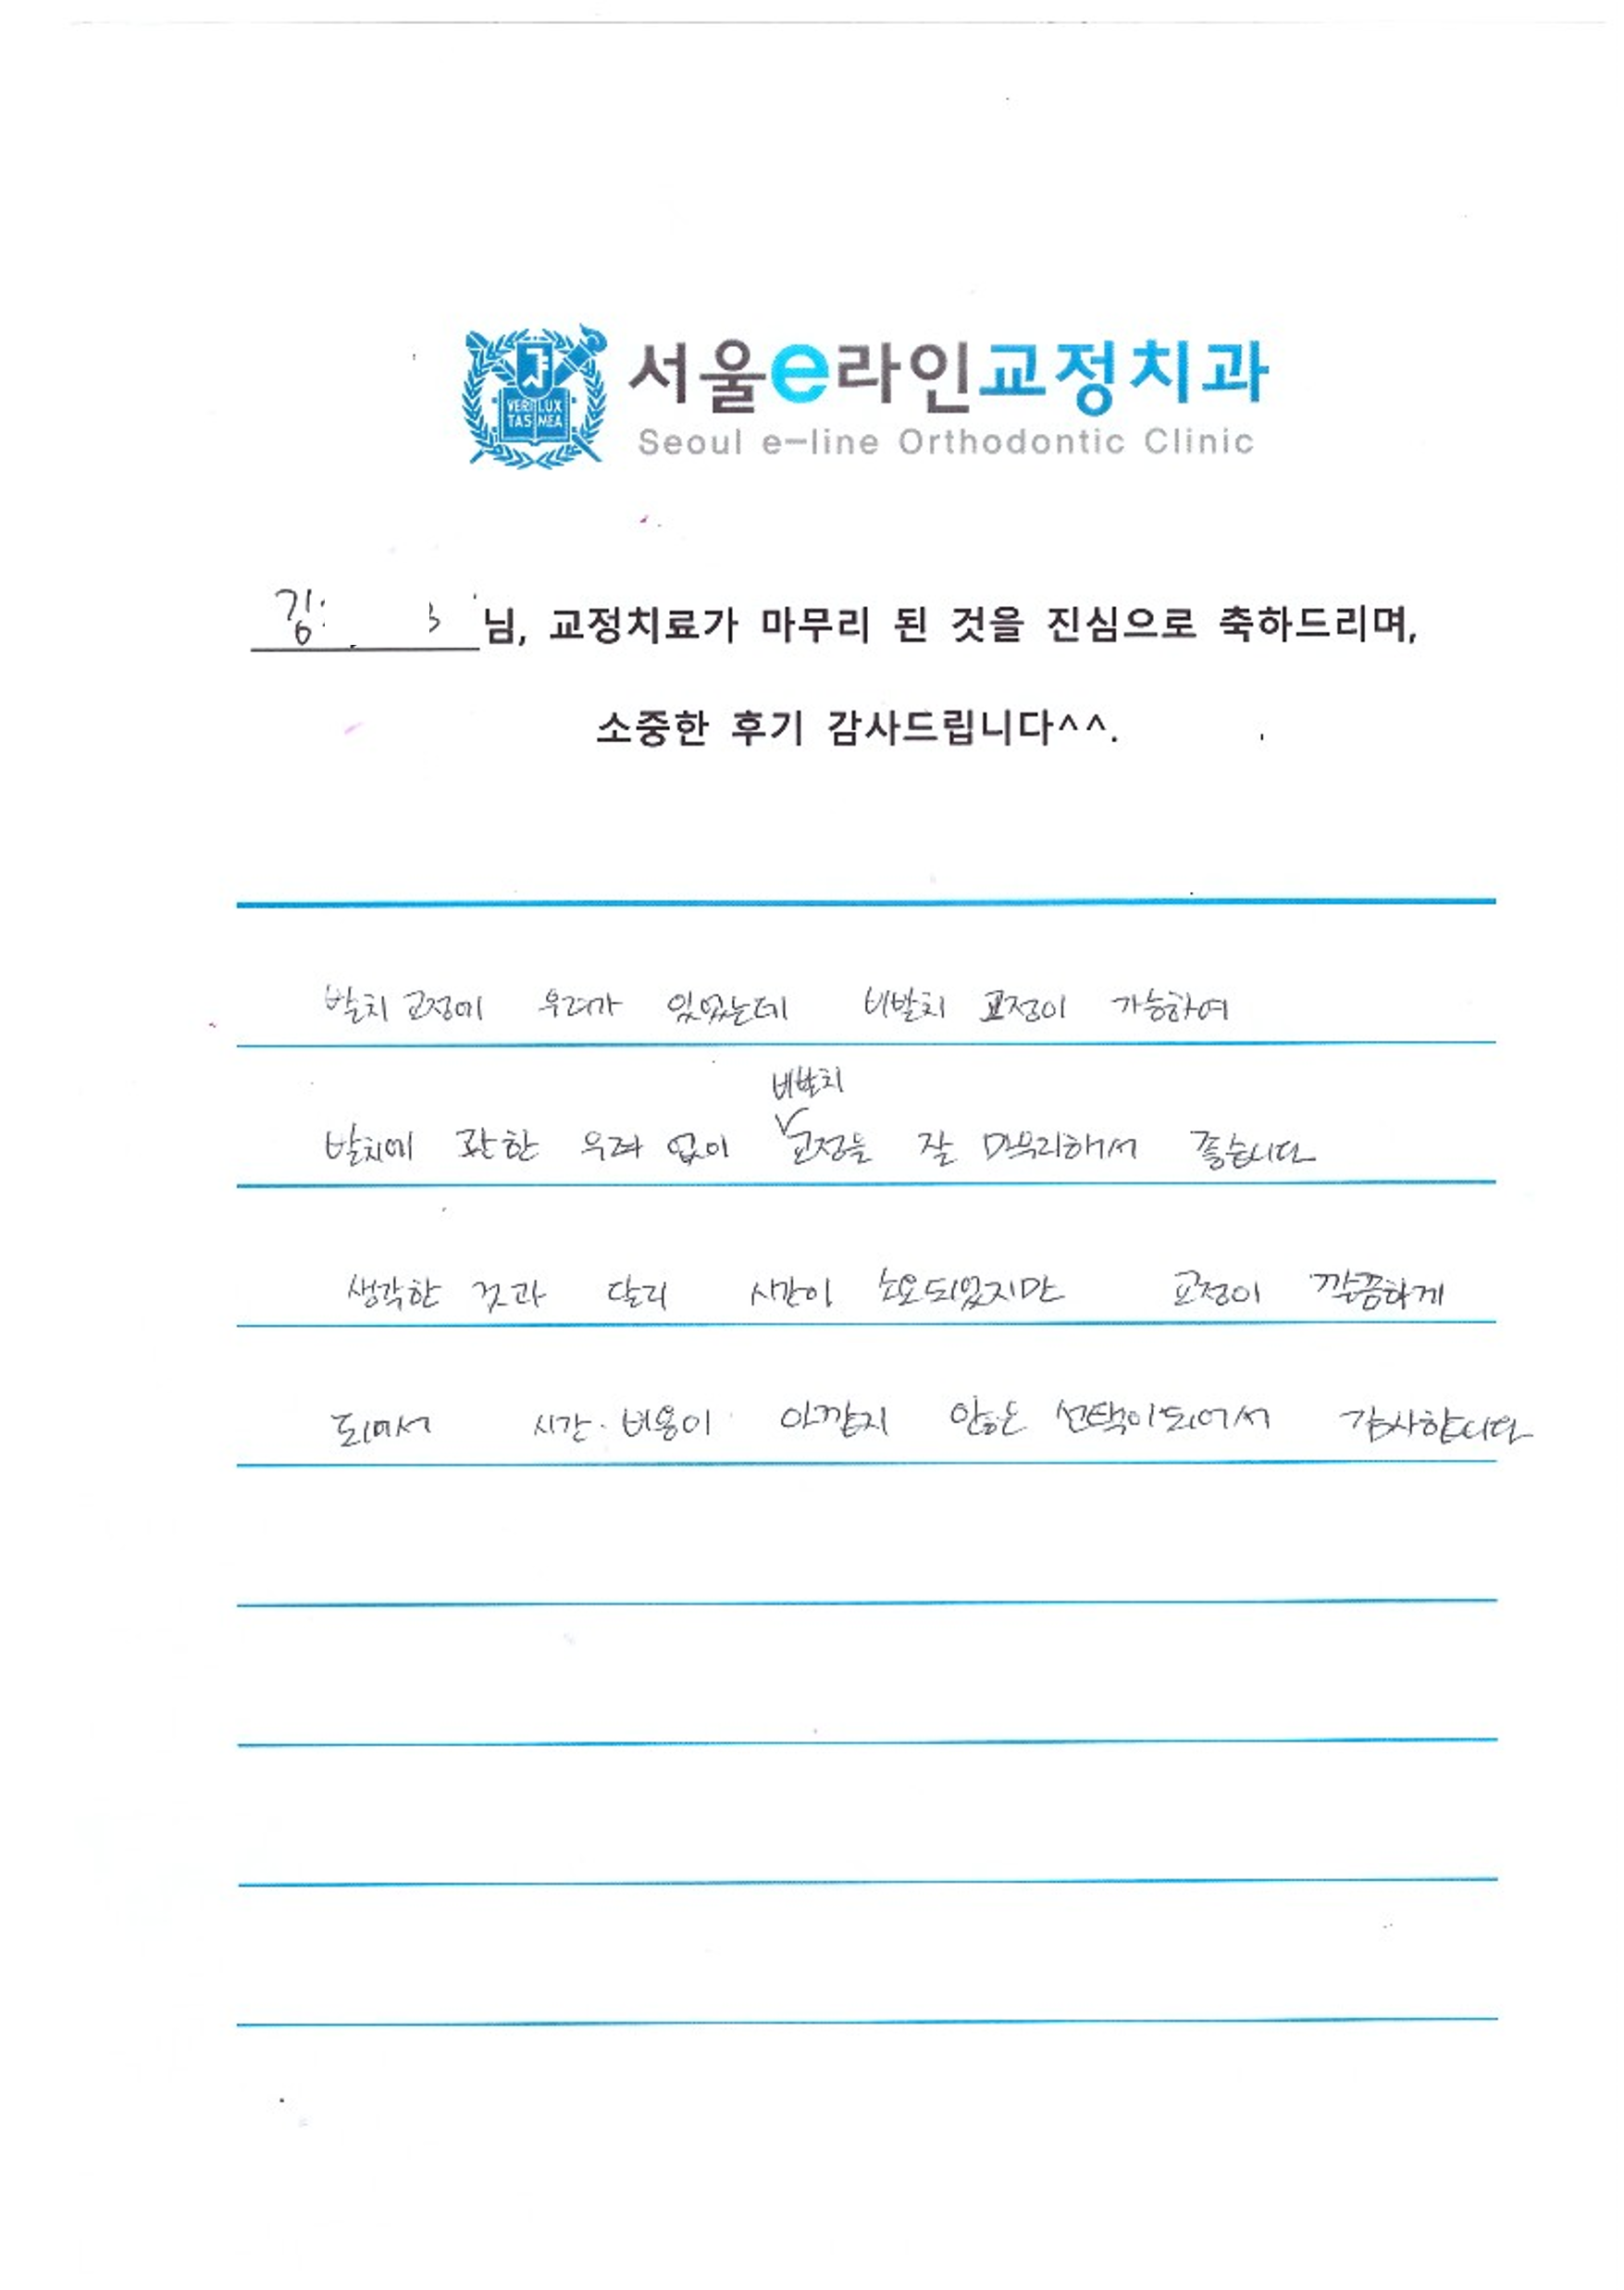 VERI LUX
TAS MEA
서울e라인교정치과
Seoul e-line Orthodontic Clinic
김 님, 교정치료가 마무리 된 것을 진심으로 축하드리며,
소중한 후기 감사드립니다^^.
발치 교정에 우려가 있었는데 비발치 교정이 가능하여
비발치
발치에 관한 우려 없이 교정을 잘 마무리해서 좋습니다
생각한 것과 달리 시간이 소요되었지만 교정이 깔끔하게
되어서 시간·비용이 아깝지 않은 선택이 되어서 감사합니다